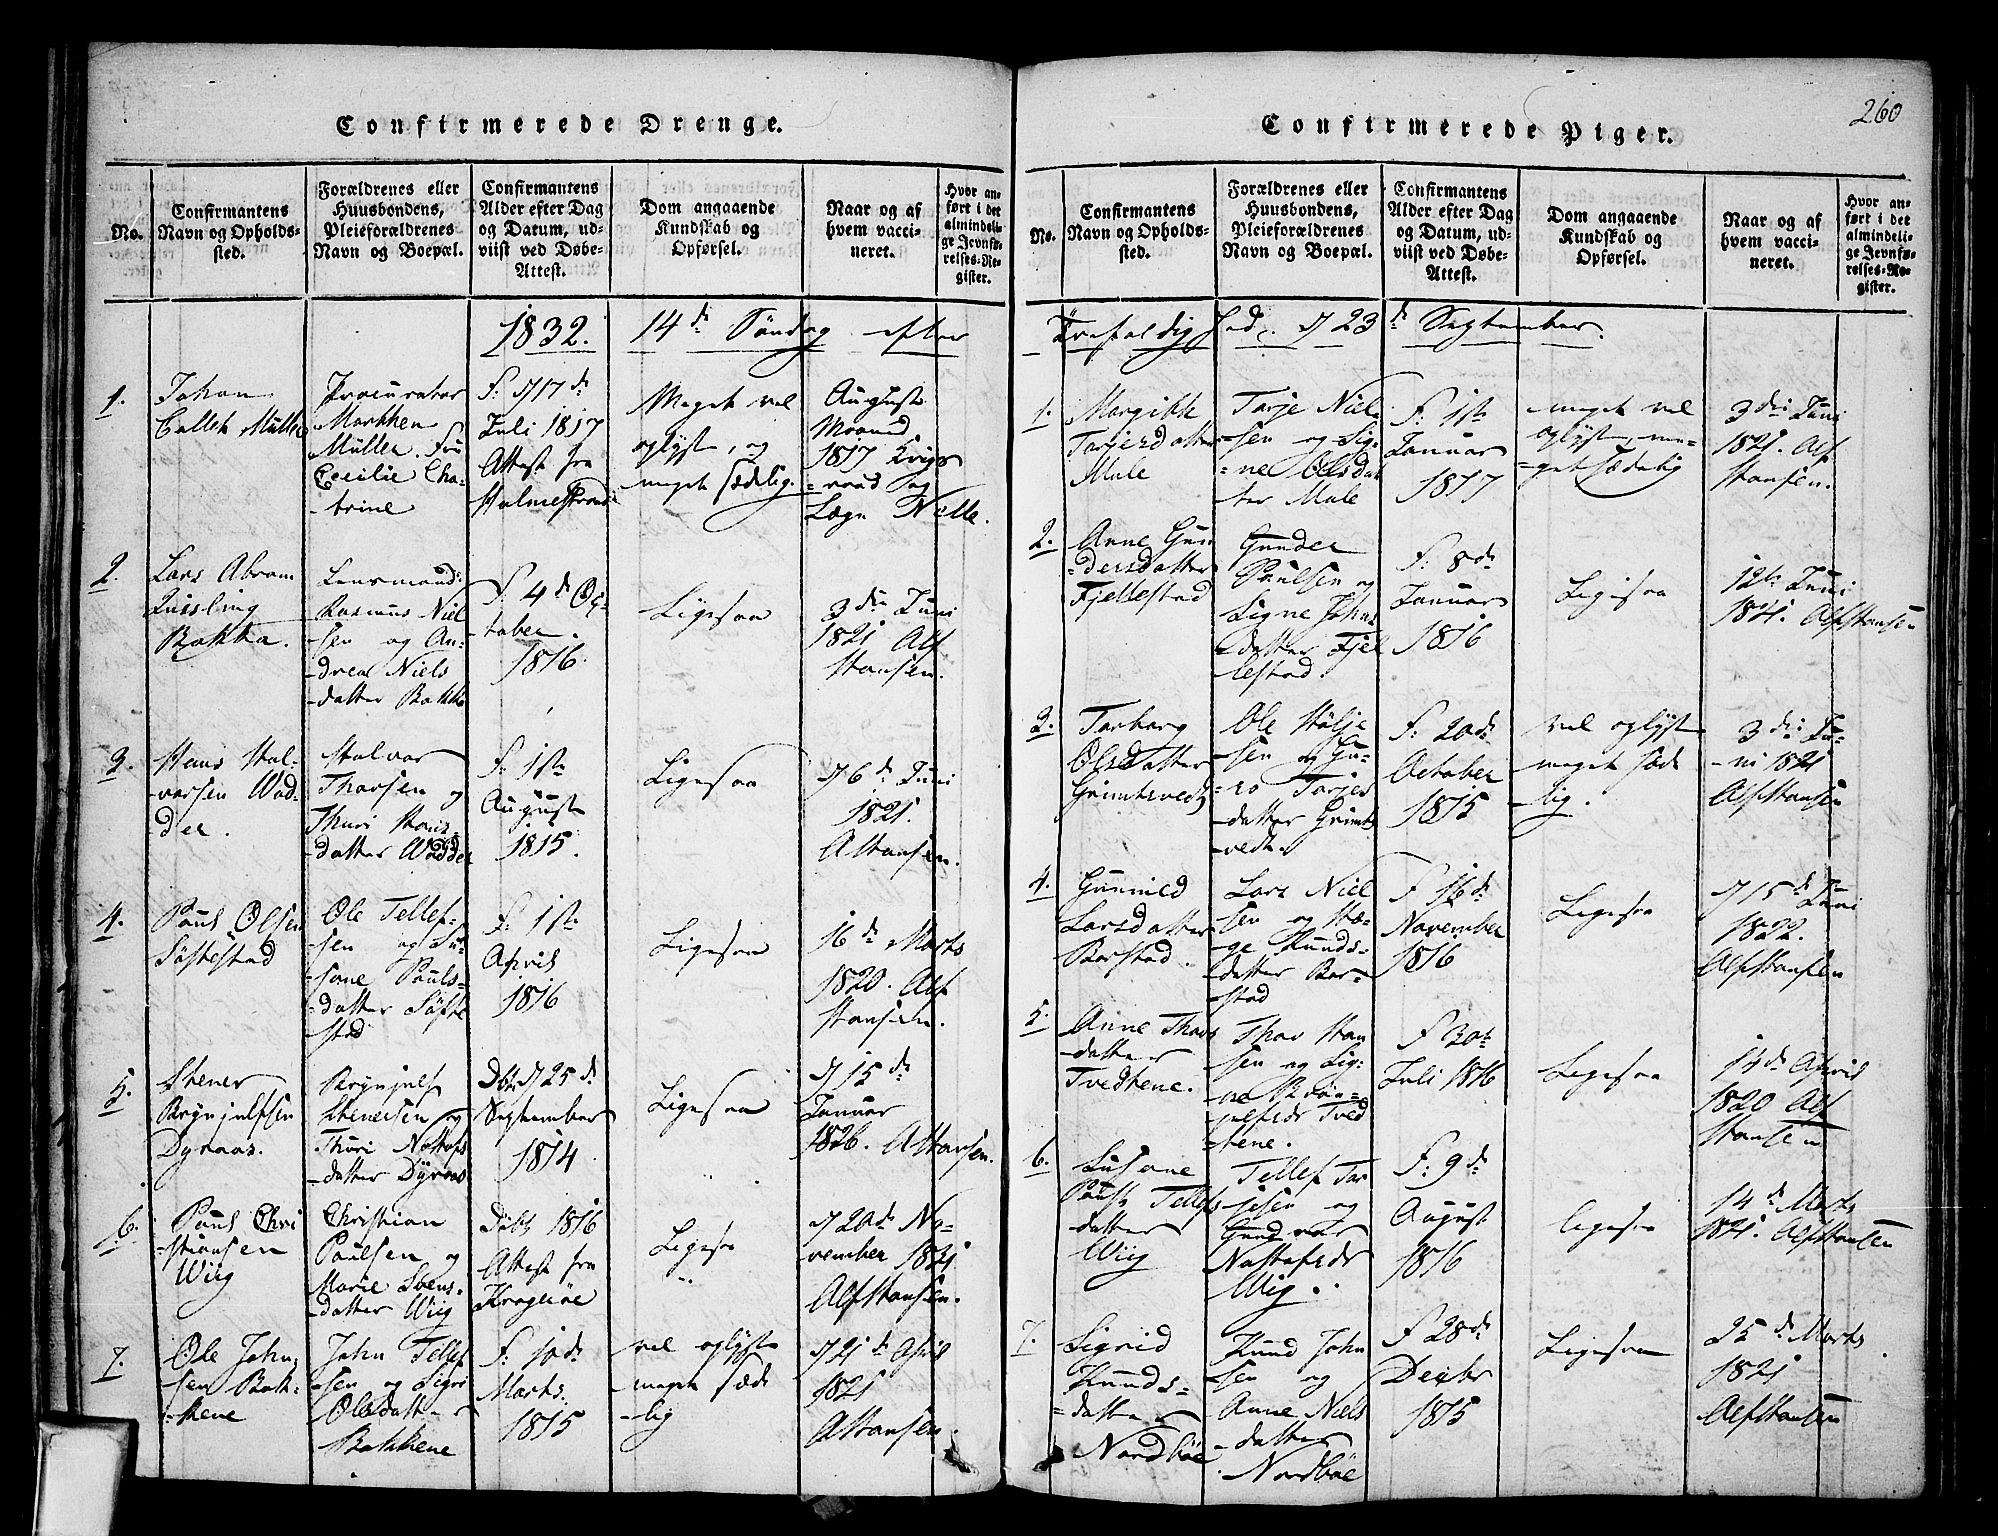 260
Confirmerede Drenge.
No.
Confirmantens
Navn og Opholds-
sted.
Forældrenes eller
Huusbondens,
Pleieforældrenes
Navn og Boepæl.
Confirmantens
Alder efter Dag
og Datum, ud-
viist ved Døbe-
Attest.
Dom angaaende
Kundskab og
Opførsel.
Naar og af
hvem vacci-
neret.
Hvor an-
ført i det
almindeli-
ge Jevnfø-
relses-Re-
gister.
1832. 14de Söndag efter
1.
Johan
Collet Müller
Procurator
Morthen
Müller. Fru
Cecilie Cha-
-trine
F: d 17de
Juli 1817
Attest fra
Holmestrand
Meget vel
oplyst, og
meget sædelig.
August
Maaned
1817 Krigs
=raad og
Læge Nelle.
2.
Lars Abram
Quisling
Bakka.
Lensmand
Rasmus Niel
-sen og An-
-drea Niels
-datter Bakke
F. 4de Oc-
tober.
1816.
Ligesaa
3die Juni
1821 Alf
Hansen.
3.
Hans Hal-
-vorsen Wad-
der.
Halvor
Thorsen og
Thuri Hans-
-datter Wadder
F: 1ste
August
1815.
Ligesaa
d 6de Juni
1821.
A Hansen.
4.
Poul Olsen
Söftestad
Ole Tellef-
-sen og Su-
-sane Pouls-
-datter Söfte
-stad
F: 1ste
April
1816
Ligesaa
16de Marts
1820. Alf
Hansen.
5.
Stener
Brynjulfsen
Dyraas.
Brynjulf
Stenersen og
Thuri Notofs
-datter Dyraas
Dbt d 25de
September
1814
Ligesaa
d 15de
Januar
1826. A Hansen.
6.
Poul Chri
-stiansen
Wiig
Christian
Poulsen og
Marie Svens-
-datter Wiig
Döbt 1816
Attest fra
Krageröe
Ligesa
d 20de No-
vember 1831
Alf Hansen.
7.
Ole John-
sen Bak-
-kene
John Tellef
-sen og Sigri
Olsdatter
Bakkene
F: 10de
Marts.
1815
vel oplyst
meget sæde
-lig
d 21de April
1821
A Hansen.
Confirmerede Piger.
No.
Confirmantens
Navn og Opholds-
sted.
Forældrenes eller
Huusbondens,
Pleieforældrenes
Navn og Boepæl.
Confirmantens
Alder efter Dag
og Datum, ud-
viist ved Døbe-
Attest.
Dom angaaende
Kundskab og
Opførsel.
Naar og af
hvem vacci-
neret.
Hvor an-
ført i det
almindeli-
ge Jevnfø-
relses-Re-
gister.
Trefoldighed. d 23de September.
1.
Margithe
Tarjesdatter
Mule
Tarje Niel-
-sen og Sig-
=ne Olsdat
ter Mule
F: 1ste
Januar
1817
meget vel
oplyst, me-
=get sædelig
3die Juni
1821. Alf
Hansen.
2.
Anne Gun
=dersdatter
Fjellestad
Gunder
Poulsen og
Signe Johns
-datter Fjel
lestad.
F: 8de
Januar
1816
Ligesaa
12te Juni
1821. Alf Hansen
3.
Torborg
Olsdatter
Grimtsvedt
Ole Höljé
-sen og Gu-
-ro Tarjes
-datter Grimts
-vedt.
F: 20de
October
1815
vel oplyst
meget sæde
-lig.
3die Ju-
-ni 1821
Alf Hansen
4.
Gunnild
Larsdatter
Borstad.
Lars Niel
-sen og Hæ-
-ge Knuds-
-datter Bor-
-stad
F 16de
November
1816
Ligesaa
d 15de Juni
1822.
Alf Hansen
5.
Anne Thors
-datter
Tvedtene.
Thor Han
-sen og Sig-
-ne Brön-
-julfsdr Tved
-tene.
F 30te
Juli 1816
Ligesaa
14de April
1820 Alf
Hansen
6.
Susane
Tellefs
-datter
Wiig
Tellef Tar
-jesen og
Gundvor
Notofsdr
Wiig.
F: 9de
August
1816
Ligesaa
14de Marts
1821. Alf Hansen
7.
Sigrid
Knuds-
=datter
Nordböe
Knud John
-sen og
Anne Niels
-datter
Nordböe
F 28de
Decbr
1815
Ligesaa
25de Marts
1821
Alf Hansen